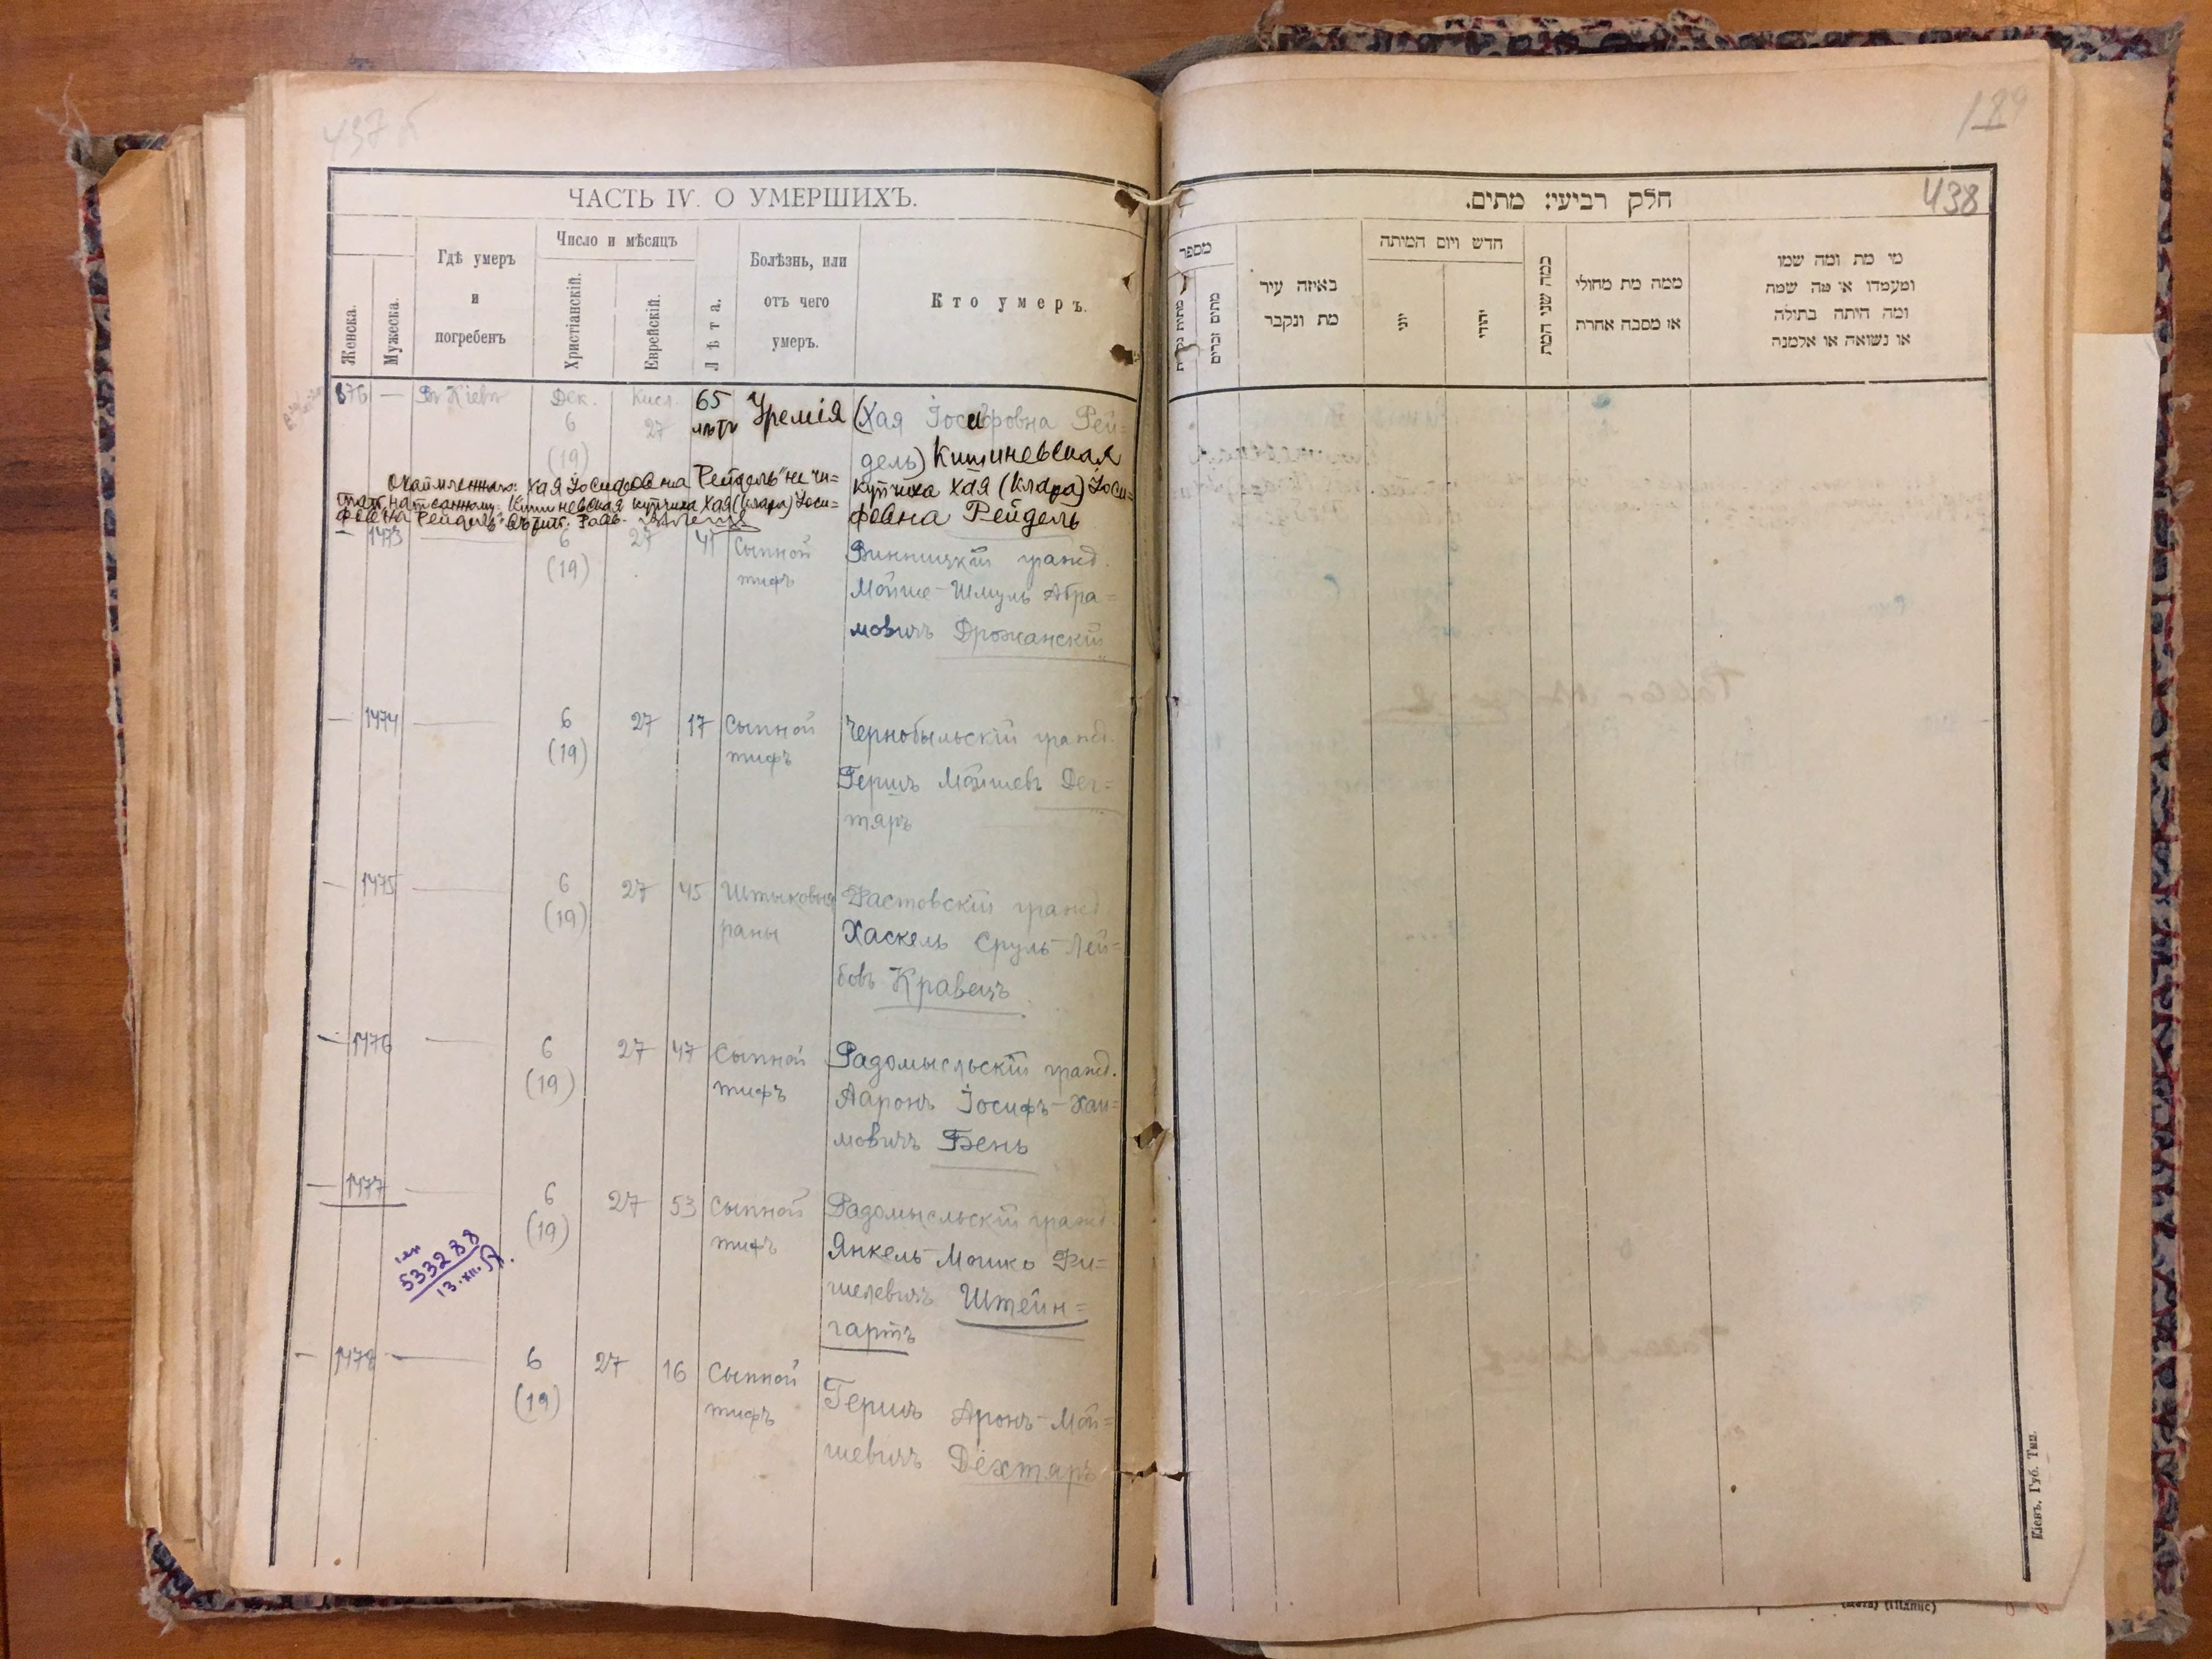 437 б
ЧАСТЬ IV. О УМЕРШИХЪ.
Женска.
Мужеска.
Гдѣ умеръ
и
погребенъ
Число и мѣсяцъ
Христіанскій.
Еврейскій.
Лѣта.
Болѣзнь, или
отъ чего
умеръ.
Кто умеръ.
876 — Въ Кіевѣ Дек. Кисл. 65 Уремія (Хая Іосифовна Рей=
6 27 лѣтъ
(19) дель) Кишиневская
купчиха Хая (Клара) Іоси=
фовна Рейдель
Окаймленнаго: "Хая Іосифовна Рейдель" не чи=
тать, написанному: "Кишиневская купчиха Хая (Клара) Іоси=
фовна Рейдель" вѣрить.
— 1473 — 6 27 41 Сыпной Винницкій гражд.
(19) тифъ Мойше-Шмуль Абра=
мовичъ Дрожанскій
— 1474 — 6 27 17 Сыпной Чернобыльскій гражд.
(19) тифъ Гершъ Мойшевъ Дег=
тярь
— 1475 — 6 27 45 Штыковыя Фастовскій гражд.
(19) раны Хаскель Сруль-Лей=
бовъ Кравецъ
— 1476 — 6 27 47 Сыпной Радомысльскій гражд.
(19) тифъ Ааронъ Іосифъ-Хаи=
мовичъ Бень
— 1477 — 6 27 53 Сыпной Радомысльскій гражд.
(19) тифъ Янкель-Мошко Фи=
шелевичъ Штейн=
гартъ
533288
13.XII.
— 1478 — 6 27 16 Сыпной Гершъ Аронъ-Мой=
(19) тифъ шевичъ Дехтярь
438
חלק רביעי: מתים.
מספר
מתים זכרים
באיזה עיר
מת ונקבר
חדש ויום המיתה
יוני
יהודי
כמה שני המת
ממה מת מחולי
או מסבה אחרת
מי מת ומה שמו
ומעמדו או מה שמה
ומה היתה בתולה
או נשואה או אלמנה
Кіевъ, Губ. Тип.